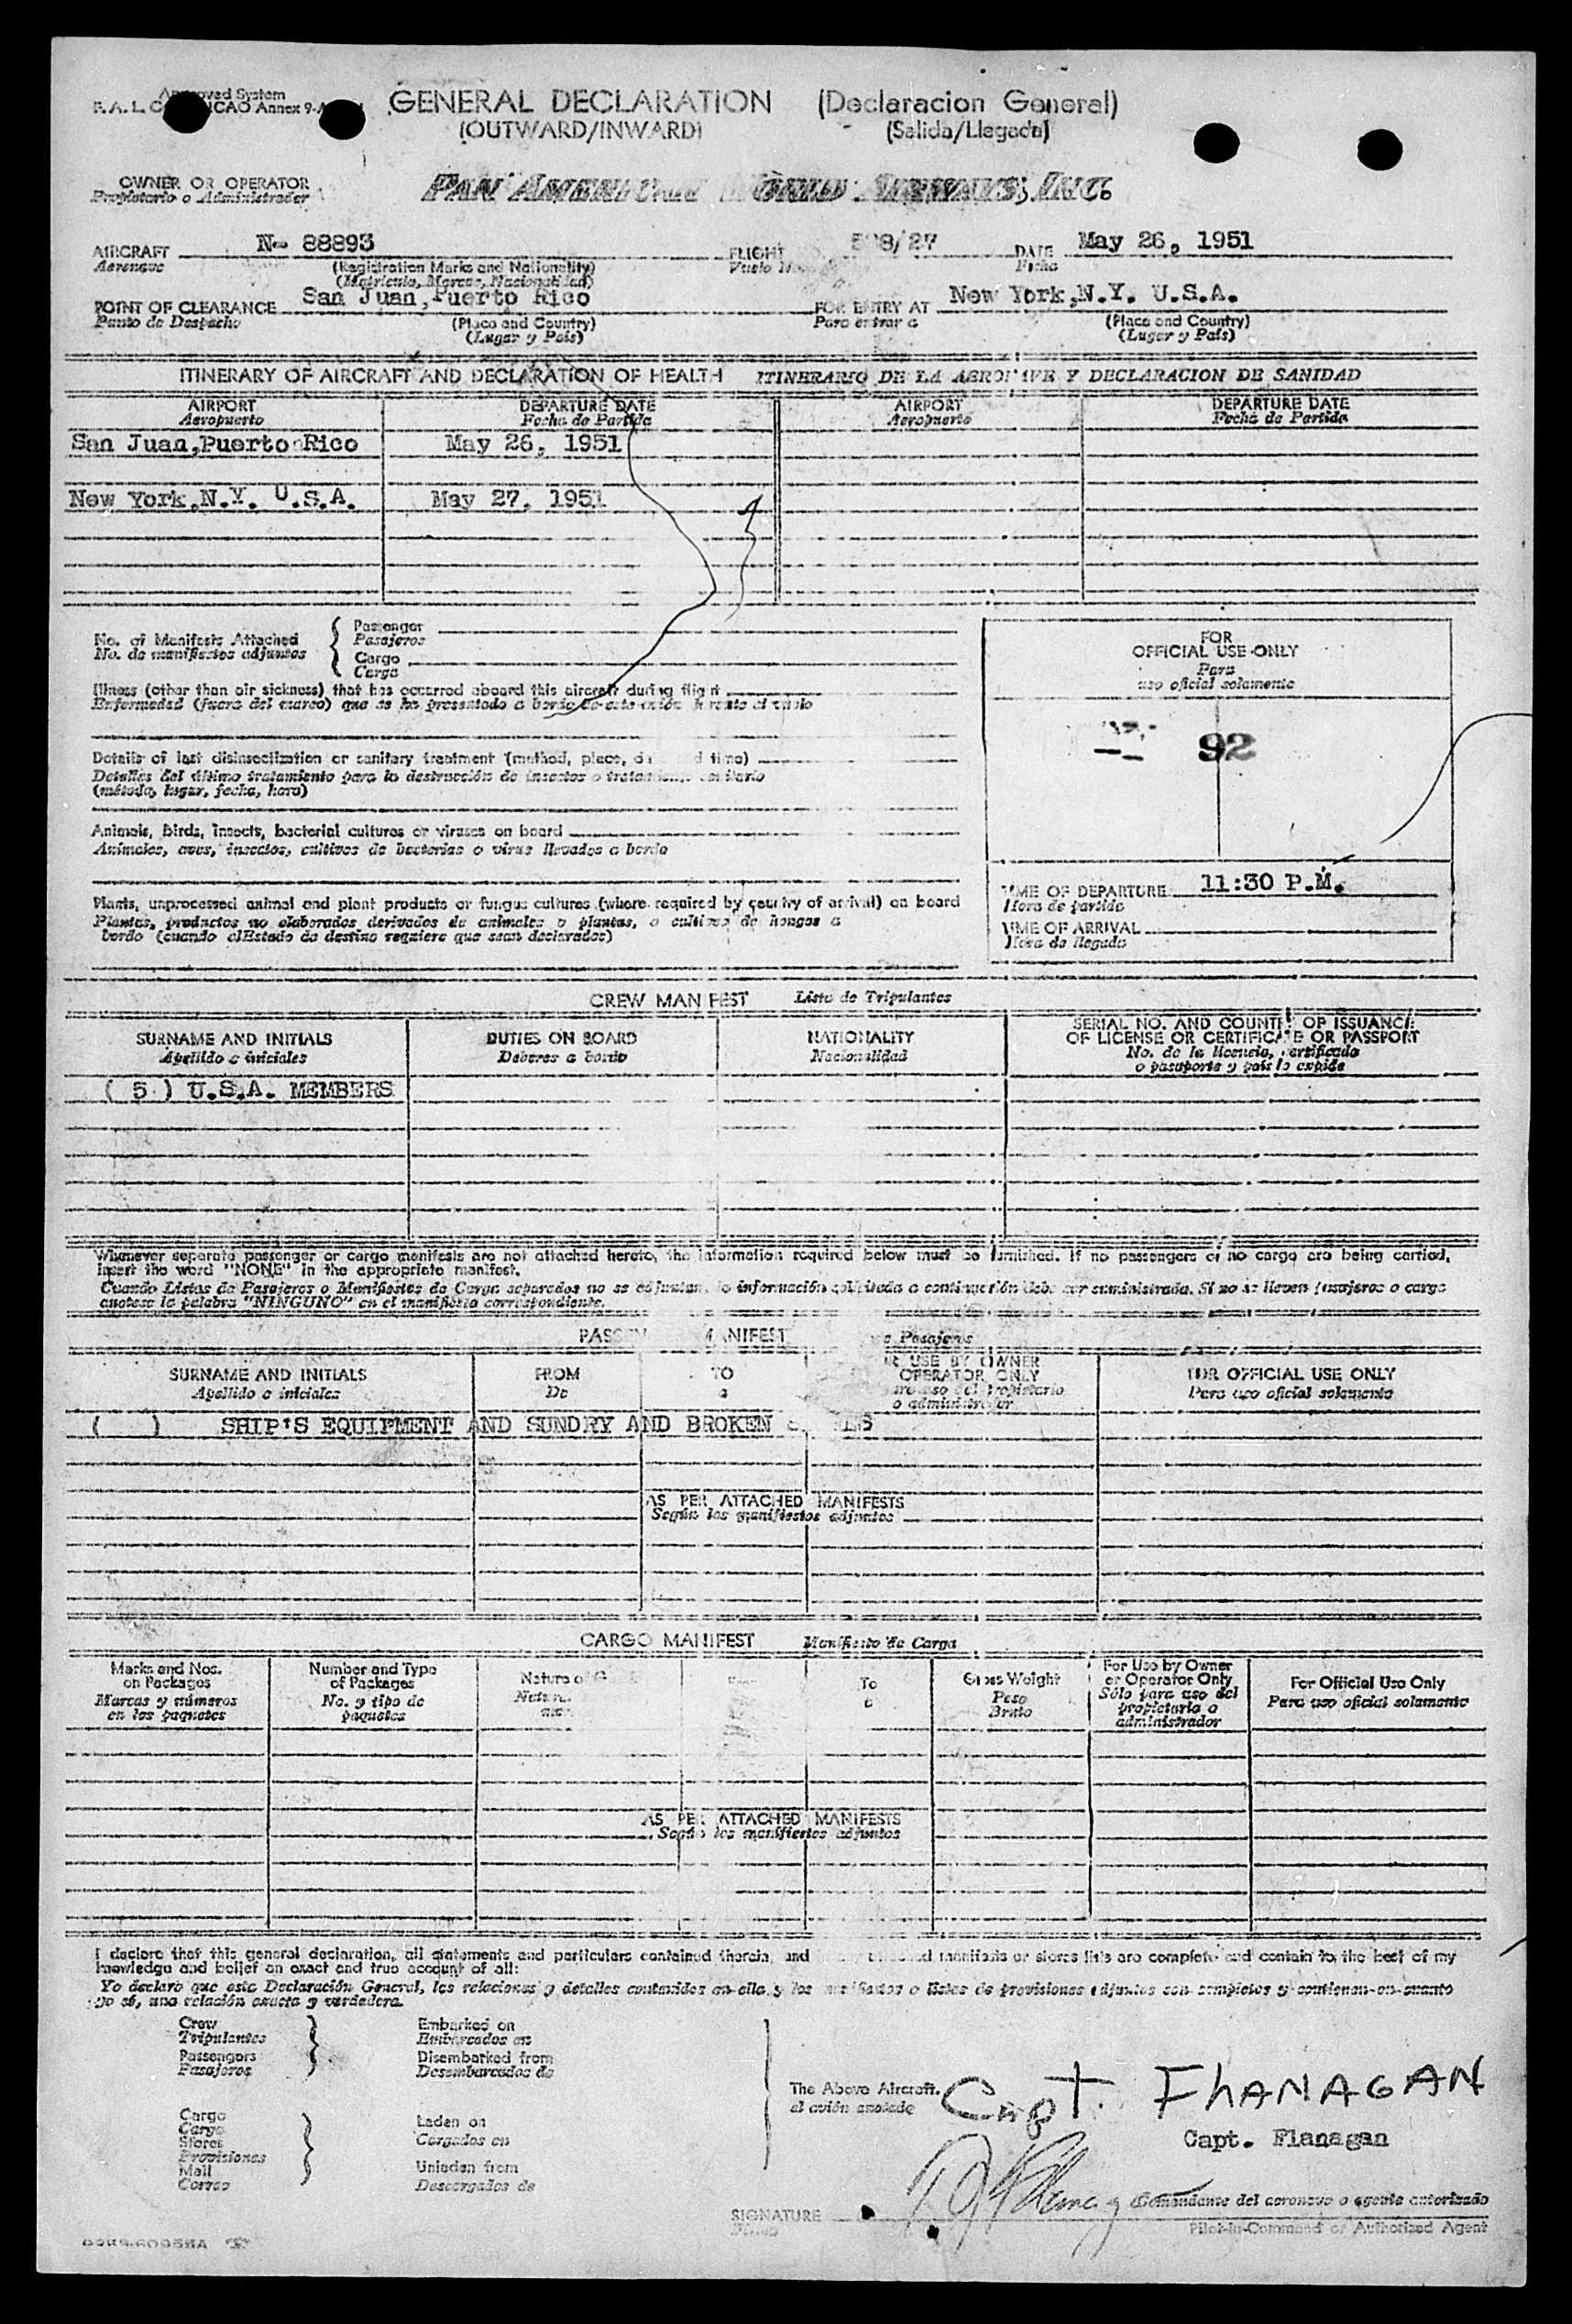 GENERAL DECLARATION (Declaracion General)
(OUTWARD/INWARD) (Salida/Llegada)
Approved System
F.A.L. ICAO Annex 9
OWNER OR OPERATOR PAN AMERICAN WORLD AIRWAYS, INC.
Propietario o Administrador
AIRCRAFT N- 88893 FLIGHT DATE May 26, 1951
Aeronave (Registration Marks and Nationality) Vuelo Fecha
(Matricula, Marcas, Nacionalidad)
POINT OF CLEARANCE San Juan, Puerto Rico FOR ENTRY AT New York,N.Y. U.S.A.
Punto de Despacho (Place and Country) Para entrar a (Place and Country)
(Lugar y País) (Lugar y País)
ITINERARY OF AIRCRAFT AND DECLARATION OF HEALTH ITINERARIO DE LA AERONAVE Y DECLARACION DE SANIDAD
AIRPORT DEPARTURE DATE AIRPORT DEPARTURE DATE
Aeropuerto Fecha de Partida Aeropuerto Fecha de Partida
San Juan,Puerto Rico May 26, 1951
New York,N.Y. U.S.A. May 27, 1951
No. of Manifests Attached Passenger
No. de manifiestos adjuntos Pasajeros
Cargo
Carga
Illness (other than air sickness) that has occurred aboard this aircraft during flight
Enfermedad (fuera del mareo) que se ha presentado a bordo de este avión durante el vuelo
Details of last disinsectization or sanitary treatment (method, place, date and time)
Detalles del último tratamiento para la destrucción de insectos o tratamiento sanitario
(método, lugar, fecha, hora)
Animals, birds, insects, bacterial cultures or viruses on board
Animales, aves, insectos, cultivos de bacterias o virus llevados a bordo
Plants, unprocessed animal and plant products or fungus cultures (where required by country of arrival) on board
Plantas, productos no elaborados derivados de animales o plantas, o cultivos de hongos a
bordo (cuando el Estado de destino requiere que sean declarados)
FOR
OFFICIAL USE ONLY
Para
uso oficial solamente
92
TIME OF DEPARTURE 11:30 P.M.
Hora de partida
TIME OF ARRIVAL
Hora de llegada
CREW MANIFEST Lista de Tripulantes
SURNAME AND INITIALS DUTIES ON BOARD NATIONALITY SERIAL NO. AND COUNTRY OF ISSUANCE
OF LICENSE OR CERTIFICATE OR PASSPORT
Apellido e iniciales Deberes a bordo Nacionalidad No. de la licencia, certificado
o pasaporte y país lo expide
( 5 ) U.S.A. MEMBERS
Whenever separate passenger or cargo manifests are not attached hereto, the information required below must be furnished. If no passengers or no cargo are being carried,
insert the word "NONE" in the appropriate manifest.
Cuando Listas de Pasajeros o Manifiestos de Carga separados no se adjuntan, la información solicitada a continuación debe ser suministrada. Si no se llevan pasajeros o carga
anotese la palabra "NINGUNO" en el manifiesto correspondiente.
PASSENGER MANIFEST Pasajeros
SURNAME AND INITIALS FROM TO FOR USE BY OWNER
OPERATOR ONLY FOR OFFICIAL USE ONLY
Apellido e iniciales De a Para uso del propietario
o administrador Para uso oficial solamente
( ) SHIP'S EQUIPMENT AND SUNDRY AND BROKEN
AS PER ATTACHED MANIFESTS
Según los manifiestos adjuntos
CARGO MANIFEST Manifiesto de Carga
Marks and Nos.
on Packages
Marcas y números
en los paquetes
Number and Type
of Packages
No. y tipo de
paquetes
Nature of
To
a
Gross Weight
Peso
Bruto
For Use by Owner
or Operator Only
Sólo para uso del
propietario o
administrador
For Official Use Only
Para uso oficial solamente
AS PER ATTACHED MANIFESTS
Según los manifiestos adjuntos
I declare that this general declaration, all statements and particulars contained therein, and any attached manifests or stores lists are complete and contain to the best of my
knowledge and belief an exact and true account of all:
Yo declaro que esta Declaración General, las relaciones y detalles contenidos en ella y los manifiestos o listas de provisiones adjuntos son completos y contienen en cuanto
yo sé, una relación exacta y verdadera.
Crew Embarked on
Tripulantes Embarcados en
Passengers Disembarked from
Pasajeros Desembarcados de
Cargo Laden on
Carga Cargados en
Stores
Provisiones
Mail Unladen from
Correo Descargados de
The Above Aircraft. Capt. FLANAGAN
al avión anotado
Capt. Flanagan
Comandante del aeronave o agente autorizado
SIGNATURE
Firma
Pilot-in-Command or Authorized Agent